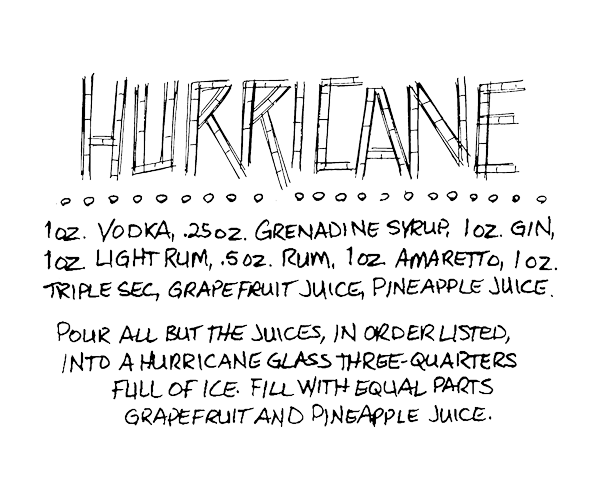 HURRICANE
1 OZ. VODKA, .25 OZ. GRENADINE SYRUP, 1 OZ. GIN,
1 OZ. LIGHT RUM, .5 OZ. RUM, 1 OZ. AMARETTO, 1 OZ.
TRIPLE SEC, GRAPEFRUIT JUICE, PINEAPPLE JUICE.
POUR ALL BUT THE JUICES, IN ORDER LISTED,
INTO A HURRICANE GLASS THREE-QUARTERS
FULL OF ICE. FILL WITH EQUAL PARTS
GRAPEFRUIT AND PINEAPPLE JUICE.